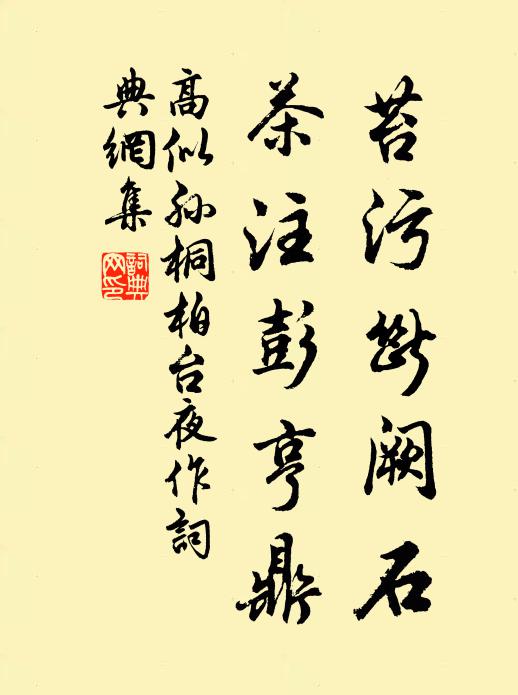 苔污断阙石
茶注彭亨鼎
高似孙桐柏台夜作詞
典網集
詞典網印